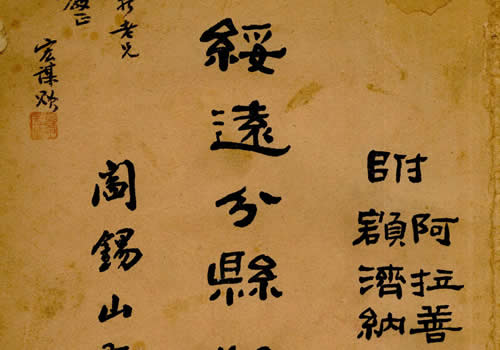 附
阿拉善
額濟納
綏遠分縣
閻錫山
老兄
正
宏謀